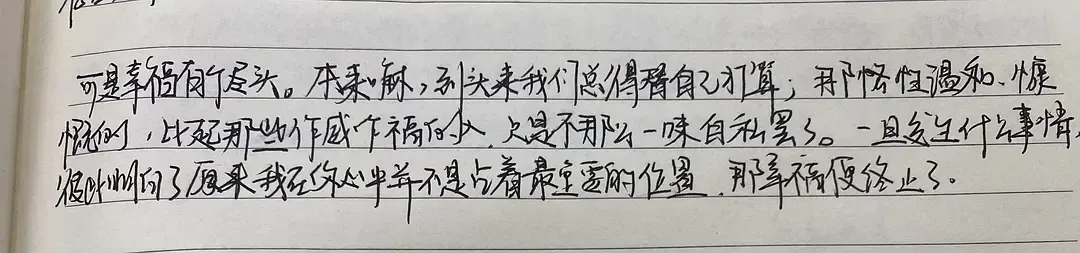 可是幸福有个尽头。本来嘛，到头来我们总得替自己打算；那性温和、慷
慨的，比起那些作威作福的人，只是不那么一味自私罢了。一旦发生什么事情，
彼此明白了原来我在你心中并不是占着最重要的位置，那幸福便终止了。